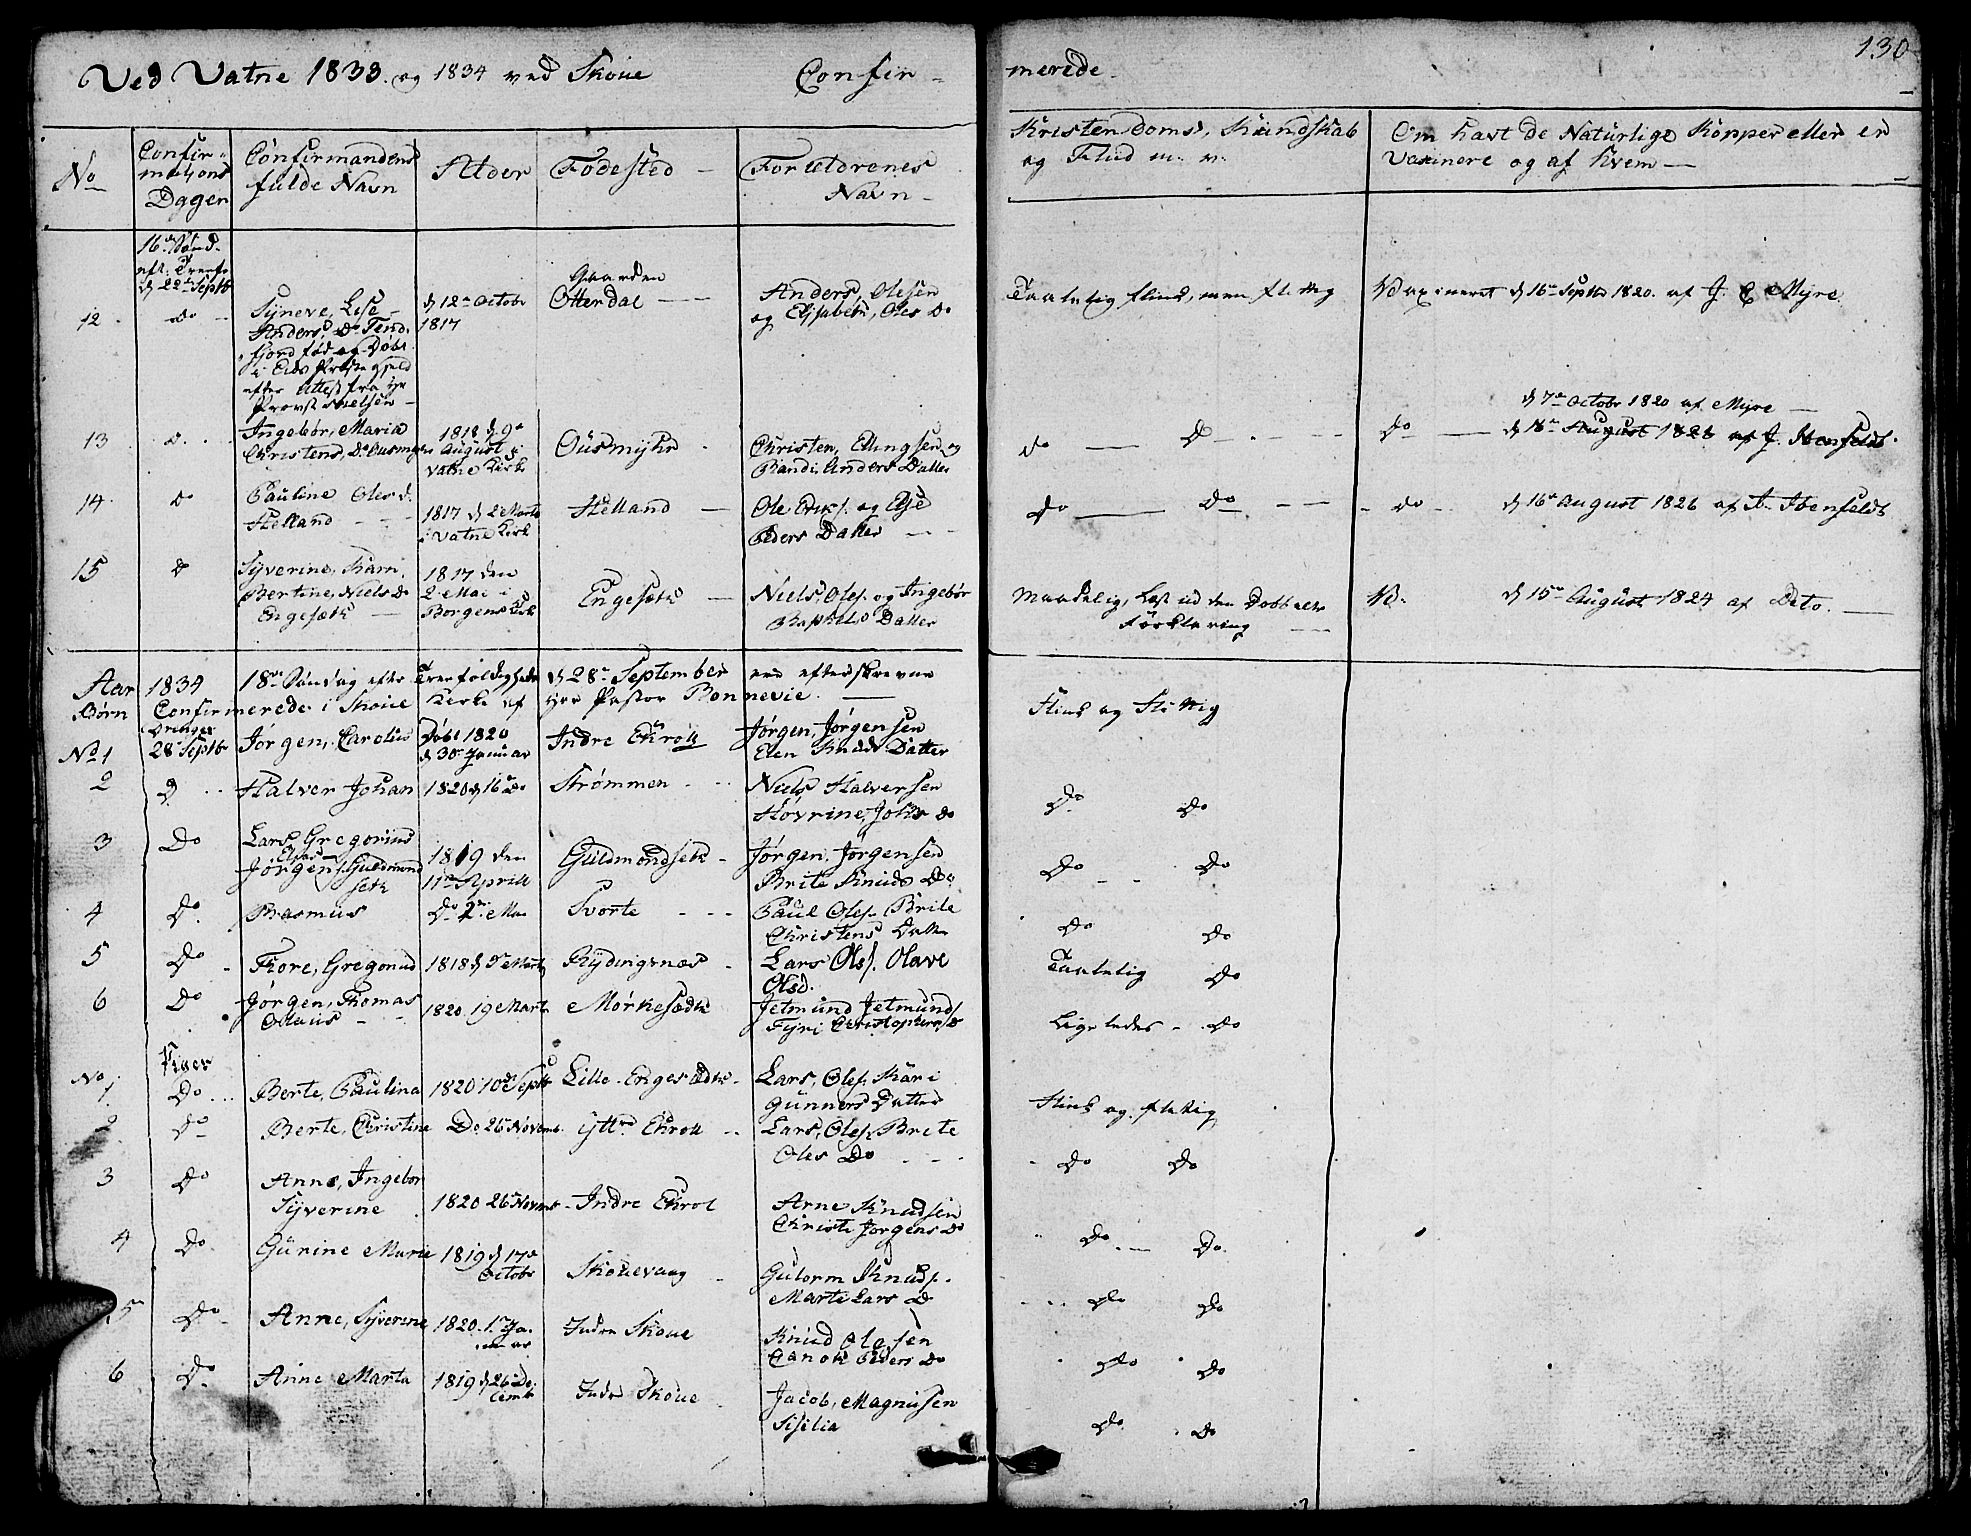 130
Ved Vatne 1833. og 1834 ved Skoue Confir-
merede.
No
Confir-
mations
Dagen
Confirmandens
fulde Navn
Alder
Fødested
Forældrenes
Navn
Kristendoms, Kundskab
og Flid m. v.
Om havt de Naturlige Kopper eller er
Vaxinere og af hvem
16de Sønd.
eft. Trenf.
d 22de Septb
12
do
Syneve, Lise
Anders Dr Tend-
fjord fød og Døbt
i Eids Præstegjeld
efter Attest fra hr
Provst Nielsen
d 12te Octobr
1817
Gaarden
Otterdal
Anders Olesen
og Elisabeth, Oles Dr
Taalelig flink, men flittig
Vaxineret d 16de Septbr 1820. af J. E Myre.
13
do
Ingebør, Maria
Christens Dr
1818 d. 9de
August i
Vatne Kirke
Ousmyhr
Christen, Ellingsen og
Randi Anders Datter
do
Do
do
d 7de Octobr 1820 af Myre
14
do
Pauline Oles d.
Helland
1817 d 2 Marts
i Vatne Kirk
Helland
Ole og Else
Peders Datter
do
Do
do
d 16de August 1826 af
15
do
Syverine, Karn.
Bertine, Niels Dr
Engesæth
1817 den
2 Mai i
Borgens Kirk
Engesæth
Niels, Oles. og Ingebør
Datter
Maadelig, Læst ud den Dobbelte
Forklaring
V.
d 15de August 1824 af Dito.
Aar 1834 18de Søndag efter Trenfoldigheds d 28de September ere efterskrevne
Børn Confirmerede i Skoue Kirke af Hrr Pastor Bonnevie.
Drenger
No 1
28 Septb
Jørgen, Carolus
Døbt 1820
d 30 Januar
Indre Ekroll
Jørgen, Jørgensen
Elen Knuds Datter
Flink og Flittig
2
D
Halver Johan
1820 d 16 Do
Strømmen
Niels Halversen
Hovrine, Johs Dr
Do
Do
3
Do
Lars, Gregorius
Jørgens. Guldmund
seth
1819 den
11te Aprill
Guldmondseth
Jørgen, Jørgensen
Brite Knuds Dr
Do
Do
4
Do
Rasmus
Do 2de Mai
Svorte
Paul Oles. Brite
Christens Datter
Do
Do
5
Do
Tore, Gregorius
1818 d 9 Marts
Rydingsnæs
Lars Ols. Olave
Olsd.
Taalelig
Do
6
Do
Jørgen, Thomas
Olaus
1820. 19 Marts
Mørkesædth
Jetmund Jetmunds
Fyri Christophers D
Ligeledes
Do
Piger
No 1
Do
Berte, Paulina
1820 10de Septb
Lille-Engesædth
Lars, Oles. Kari
Gunners Datter
Flink og flitig
2
Do
Berte, Christine
Do 26 Novemb.
Ytt. Ekroll
Lars, Oles. Brite
Oles Do
Do
Do
3
Do
Anne, Ingebor
Syverine
1820 26 Novemb
Indre Ekrol
Arne Knudsen
Christi Jørgens Dr
Do
Do
4
Do
Gunine Marie
1819 d 17de
Octobr
Skouevaag
Gutorm Knuds.
Marte Lars D
Do
Do
5
Do
Anne, Syverine
1820. 1. Ja-
nuar
Indre Skoue
Knud Olesen
Peders Dr
Do
Do
6
Do
Anne Marta
1819 d 26 De-
cemb
Indre Skoue
Jacob, Magnusen
Sisilia
Do
Do